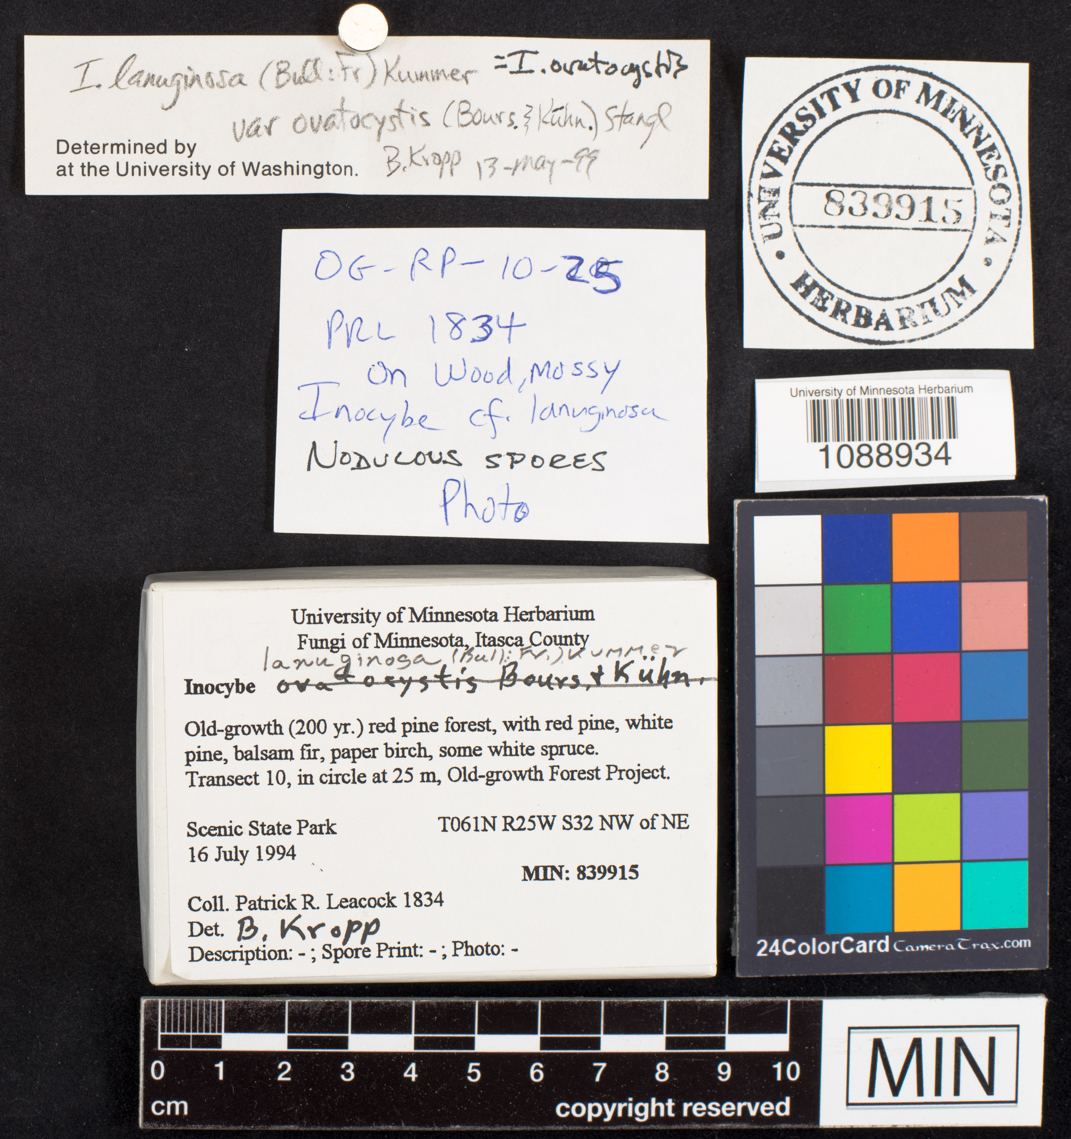 I. lanuginosa (Bull: Fr) Kummer = I. ovatocystis
var ovatocystis (Bours. & Kühn.) Stangl
Determined by
at the University of Washington.
B. Kropp 13-may-99
UNIVERSITY OF MINNESOTA
839915
• HERBARIUM •
OG-RP-10-25
PRL 1834
On Wood, Mossy
Inocybe cf. lanuginosa
NODULOUS SPORES
Photo
University of Minnesota Herbarium
1088934
University of Minnesota Herbarium
Fungi of Minnesota, Itasca County
lanuginosa (Bull: Fr.) Kummer
Inocybe ovatocystis Bours. & Kühn.
Old-growth (200 yr.) red pine forest, with red pine, white
pine, balsam fir, paper birch, some white spruce.
Transect 10, in circle at 25 m, Old-growth Forest Project.
Scenic State Park T061N R25W S32 NW of NE
16 July 1994
MIN: 839915
Coll. Patrick R. Leacock 1834
Det. B. Kropp
Description: - ; Spore Print: - ; Photo: -
24ColorCard CameraTrax.com
0 1 2 3 4 5 6 7 8 9 10
cm copyright reserved
MIN